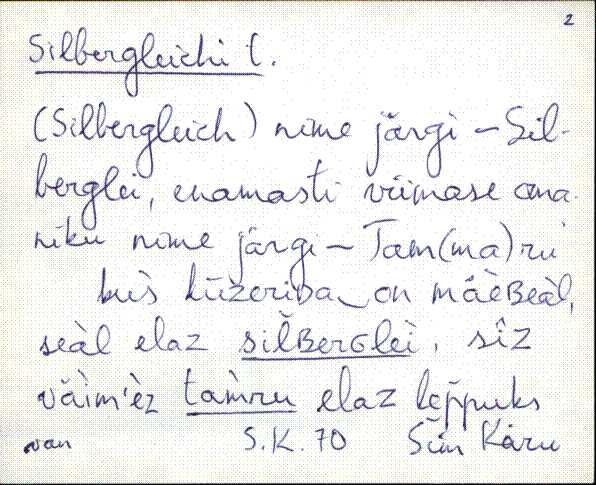 2
Silbergleichi t.
(Silbergleich) nime järgi – Sil-
berglei, enamasti viimase oma-
niku nime järgi – Tam(ma)ru
kus̀ kūzeriba on mäèʙeàl,
seàl elaz silʙerɢleì, sîz
vǎìm'èz tam̀ru elaz lep̌puks
van S.K. 70 Sūn Käru